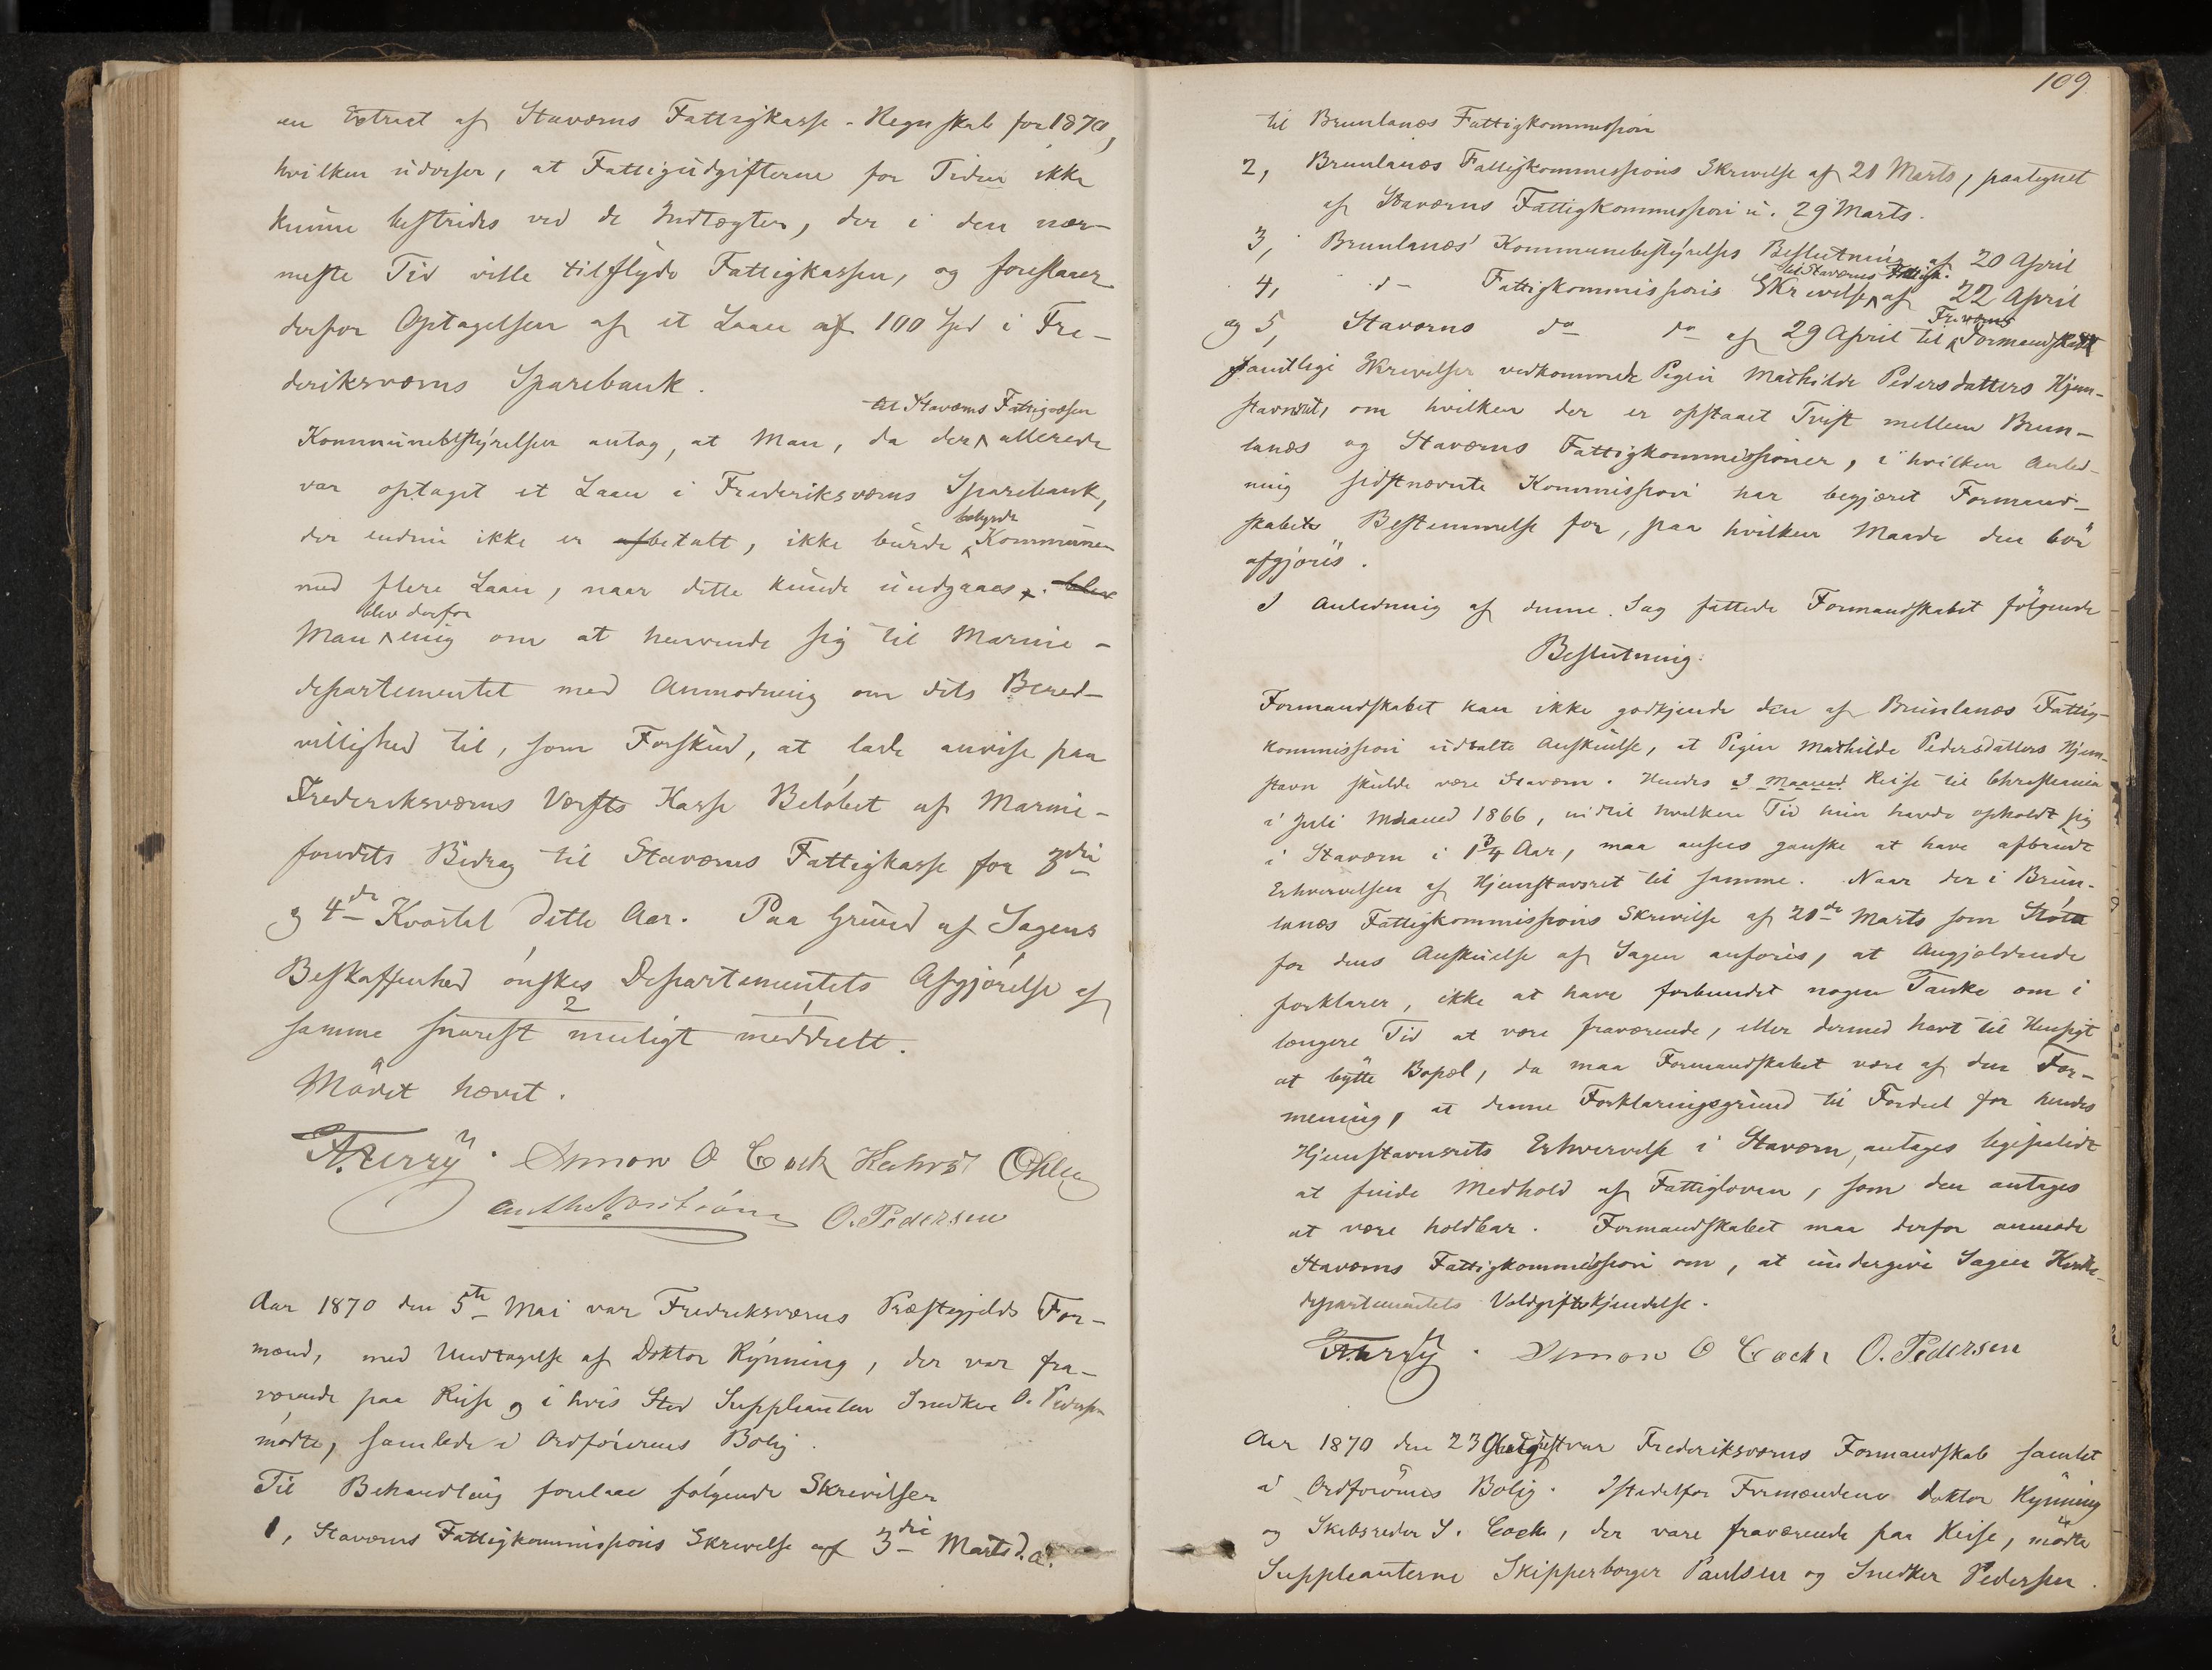 en Extract af Staværns Fattigkasse-Regnskab for 1870,
hvilken udviser, at Fattigudgifterne for Tiden ikke
kunne bestrides ved de Indtægter, der i den nær-
meste Tid ville tilflyde Fattigkassen, og foreslaaer
derfor Optagelsen af et Laan af 100 Spd i Fre-
deriksværns Sparebank.
til Staværns Fattigvæsen
Kommunebestyrelsen antog, at Man, da der allerede
var optaget et Laan i Frederiksværns Sparebank,
bebyrde
der endnu ikke er afbetalt, ikke burde Kommunen
med flere Laan, naar dette kunde undgaaes. blev
blev derfor
Man enig om at henvende sig til Marine-
departementet med Anmodning om dets Bered-
villighed til, som Forskud, at lade anvise paa
Frederiksværns Værfts Kasse Beløbet af Marine-
fondets Bidrag til Staværns Fattigkasse for 3die
og 4de Kvartal dette Aar. Paa Grund af Sagens
Beskaffenhed ønskes Departementets Afgjørelse af
2 1
samme snarest muligt meddeelt.
Mødet hævet.
Simon O Cock O. Pedersen
Aar 1870 den 5te Mai var Fredriksværns Præstegjelds For-
mænd, med Undtagelse af Doktor Rynning, der var fra-
værende paa Reise og i hvis Sted Suppleanten Snedker O. Pedersen
mødte, samlede i Ordførerens Bolig.
Til Behandling forelaae følgende Skrivelser
1, Staværns Fattigkommissions Skrivelse af 3die Marts d. A.
109
til Brunlanæs Fattigkommission
2, Brunlanæs Fattigkommissions Skrivelse af 21 Marts, paategnet
af Staværns Fattigkommission u. 29 Marts.
3, Brunlanæs' Kommunebestyrelses Beslutning af 20 April
til Staværns Fattigk.
4, d- Fattigkommissions Skrivelse af 22 April
Frværns
og 5, Staværns do do af 29 April til Formandskab
samtlige Skrivelser vedkommende Pigen Mathilde Pedersdatters Hjem-
stavnsret, om hvilken der er opstaaet Tvist mellem Brun-
lanæs og Staværns Fattigkommissioner, i hvilken Anled-
ning sidstnævnte Kommission har begjæret Formand-
skabets Bestemmelse for, paa hvilken Maade den bör
afgjöres.
I Anledning af denne Sag fattede Formandskabet fölgende
Beslutning:
Formandskabet kan ikke godkjende den af Brunlanæs Fattig-
kommission udtalte Anskuelse, at Pigen Mathilde Pedersdatters Hjem-
stavn skulde være Staværn. Hendes 3 Maaned Reise til Christiania
i Juli Maaned 1866, indtil hvilken Tid hun havde opholdt sig
i Staværn i 1 3/4 Aar, maa ansees ganske at have afbrudt
Erhvervelsen af Hjemstavnsret til samme. Naar der i Brun-
lanæs Fattigkommissions Skrivelse af 21de Marts som Støtte
for dens Anskuelse af Sagen anføres, at Angjeldende
forklarer, ikke at have forbundet nogen Tanke om i
længere Tid at være fraværende, eller dermed havt til Hensigt
at bytte Bopæl, da maa Formandskabet være af den For-
mening, at denne Forklaringsgrund til Fordeel for hendes
Hjemstavnsrets Erhvervelse i Staværn, antages
at finde Medhold af Fattigloven, som den antages
at være holdbar. Formandskabet maa derfor anmode
Staværns Fattigkommission om, at undergive Sagen Kirke-
departementets Voldgiftskjendelse.
Simon O Cock O. Pedersen
Aar 1870 den 23 August var Frederiksværns Formandskab samlet
i Ordförerens Bolig. Istedetfor Formændene Doktor Rynning
og Skibsreder S. Cock, der vare fraværende paa Reise, mødte
Suppleanterne Skipperborger Paulsen og Snedker Pedersen.